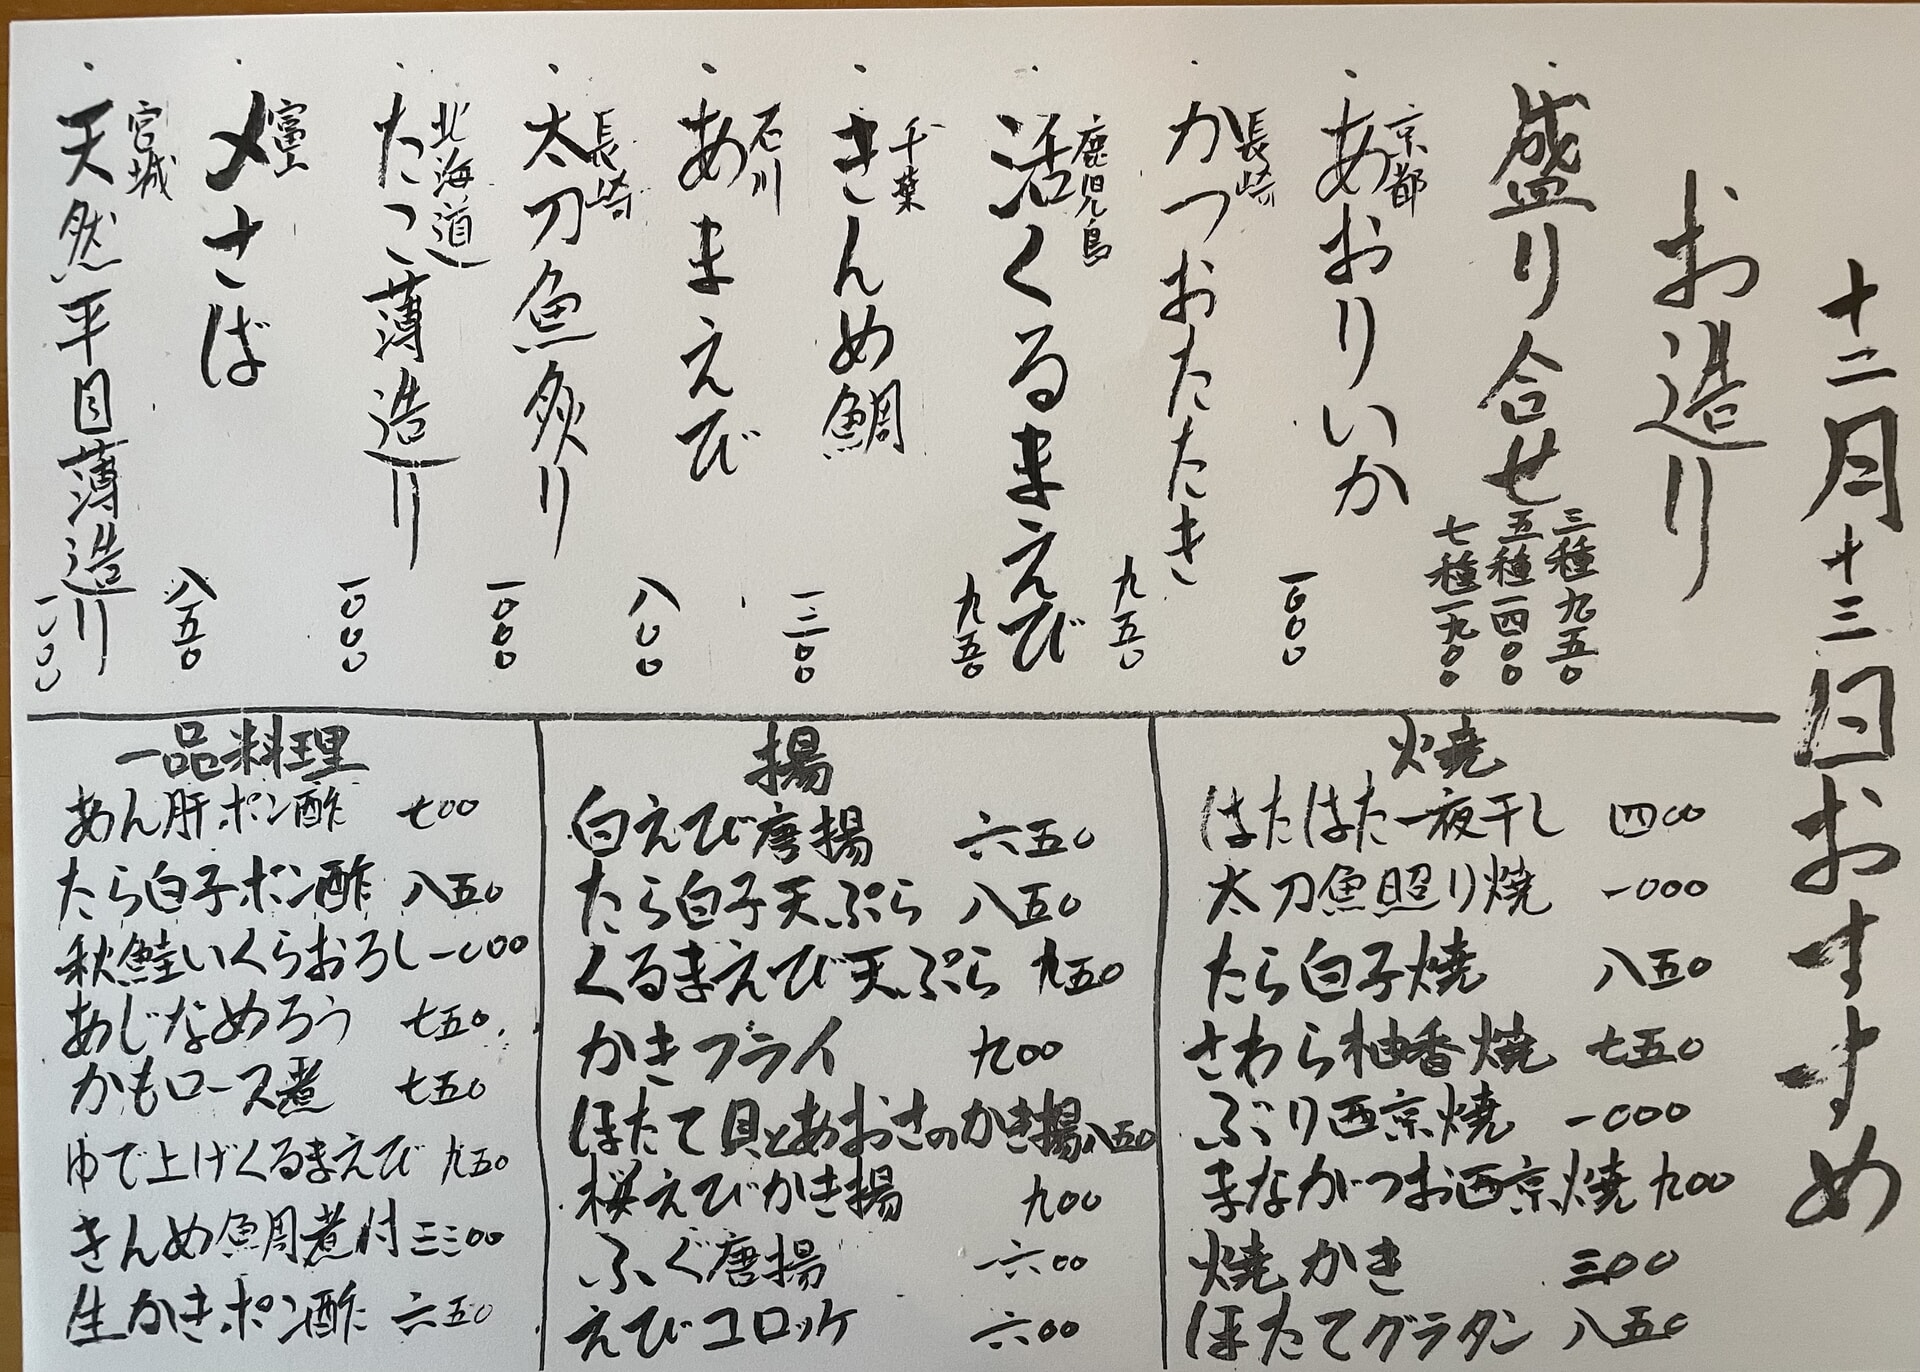 十二月十三日おすすめ
お造り
盛り合せ
三種九五〇
五種一四〇〇
七種一九〇〇
京都
あおりいか 一〇〇〇
長崎
かつおたたき 九五〇
鹿児島
活くるまえび 九五〇
千葉
きんめ鯛 一二〇〇
石川
あまえび 八〇〇
長崎
太刀魚炙り 一〇〇〇
北海道
たこ薄造り 一〇〇〇
富山
〆さば 八五〇
宮城
天然平目薄造り 一〇〇〇
焼
はたはた一夜干し 四〇〇
太刀魚照り焼 一〇〇〇
たら白子焼 八五〇
さわら柚香焼 七五〇
ぶり西京焼 一〇〇〇
まながつお西京焼 九〇〇
焼かき 三〇〇
ほたてグラタン 八五〇
揚
白えび唐揚 六五〇
たら白子天ぷら 八五〇
くるまえび天ぷら 九五〇
かきフライ 九〇〇
ほたて貝とあおさのかき揚 八五〇
桜えびかき揚 九〇〇
ふぐ唐揚 一六〇〇
えびコロッケ 六〇〇
一品料理
あん肝ポン酢 七〇〇
たら白子ポン酢 八五〇
秋鮭いくらおろし 一〇〇〇
あじなめろう 七五〇
かもロース煮 七五〇
ゆで上げくるまえび 九五〇
きんめ鯛煮付 三三〇〇
生かきポン酢 六五〇